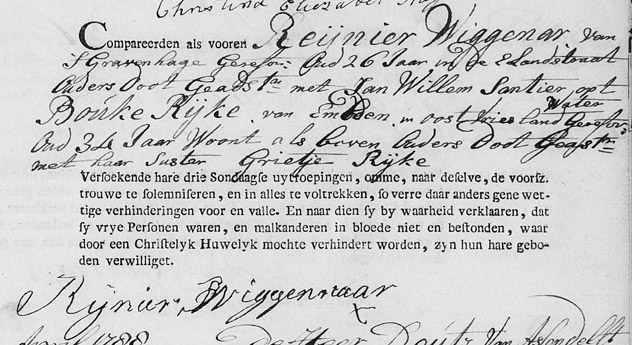 Christina Elizabet
Compareerden als vooren Reijnier Wiggenar van
S Gravenhage Gerefor: Oud 26 Jaar in de Elandstraat
Ouders Doot Geadstr met Jan Willem Santier opt
Water
Bouke Rijke van Embden in Oost Vriesland Gerefor:
Oud 34 Jaar Woont als boven Ouders Doot Geadstr
met haar Suster Grietje Rijke
Versoekende hare drie Sondaagse uytroepingen, omme, naar deselve, de voorsz.
trouwe te solemniseren, en in alles te voltrekken, so verre daar anders gene wet-
tige verhinderingen voor en valle. En naar dien sy by waarheid verklaaren, dat
sy vrye Personen waren, en malkanderen in bloede niet en bestonden, waar
door een Christelyk Huwelyk mochte verhindert worden, zyn hun hare gebo-
den verwilliget.
Rijnier Wiggenraar
x
April 1788 De Heer Deutz Van Assendelft